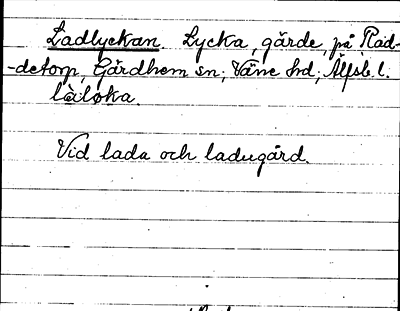 Ladlyckan. Lycka, gärde, på Rad-
-detorp, Gärdhem sn; Väne hd; Älfsb. l.
Vid lada och ladugård.